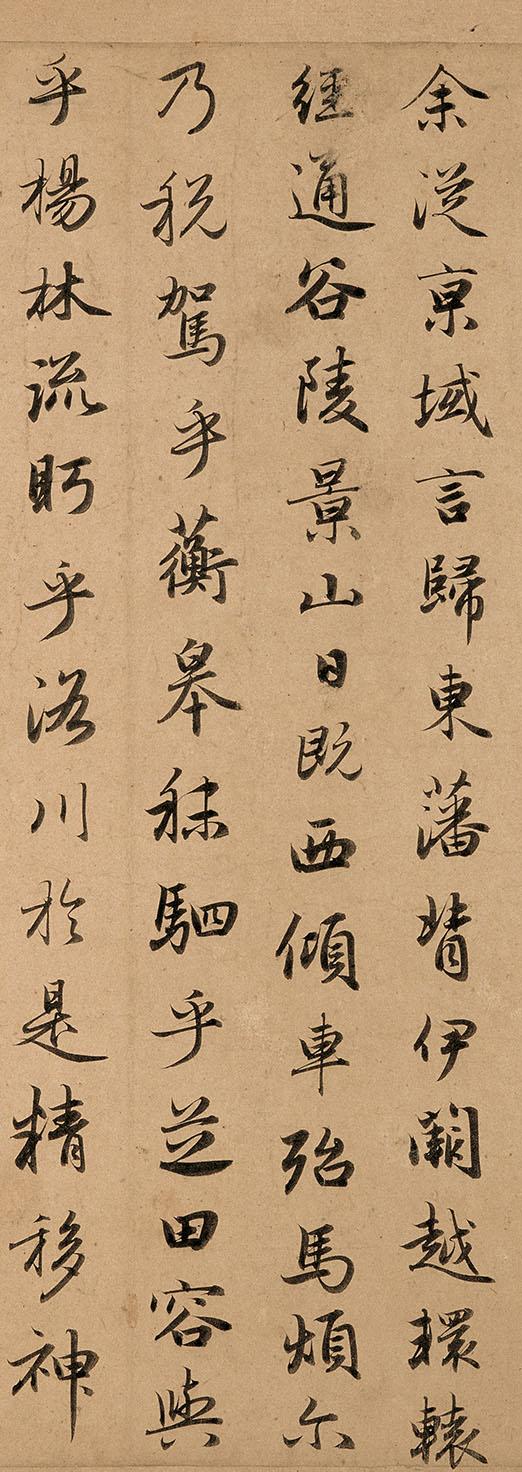 余從京域言歸東藩背伊闕越轘轅
經通谷陵景山日既西傾車殆馬煩尓
乃稅駕乎蘅皋秣駟乎芝田容與
乎楊林流眄乎洛川於是精移神